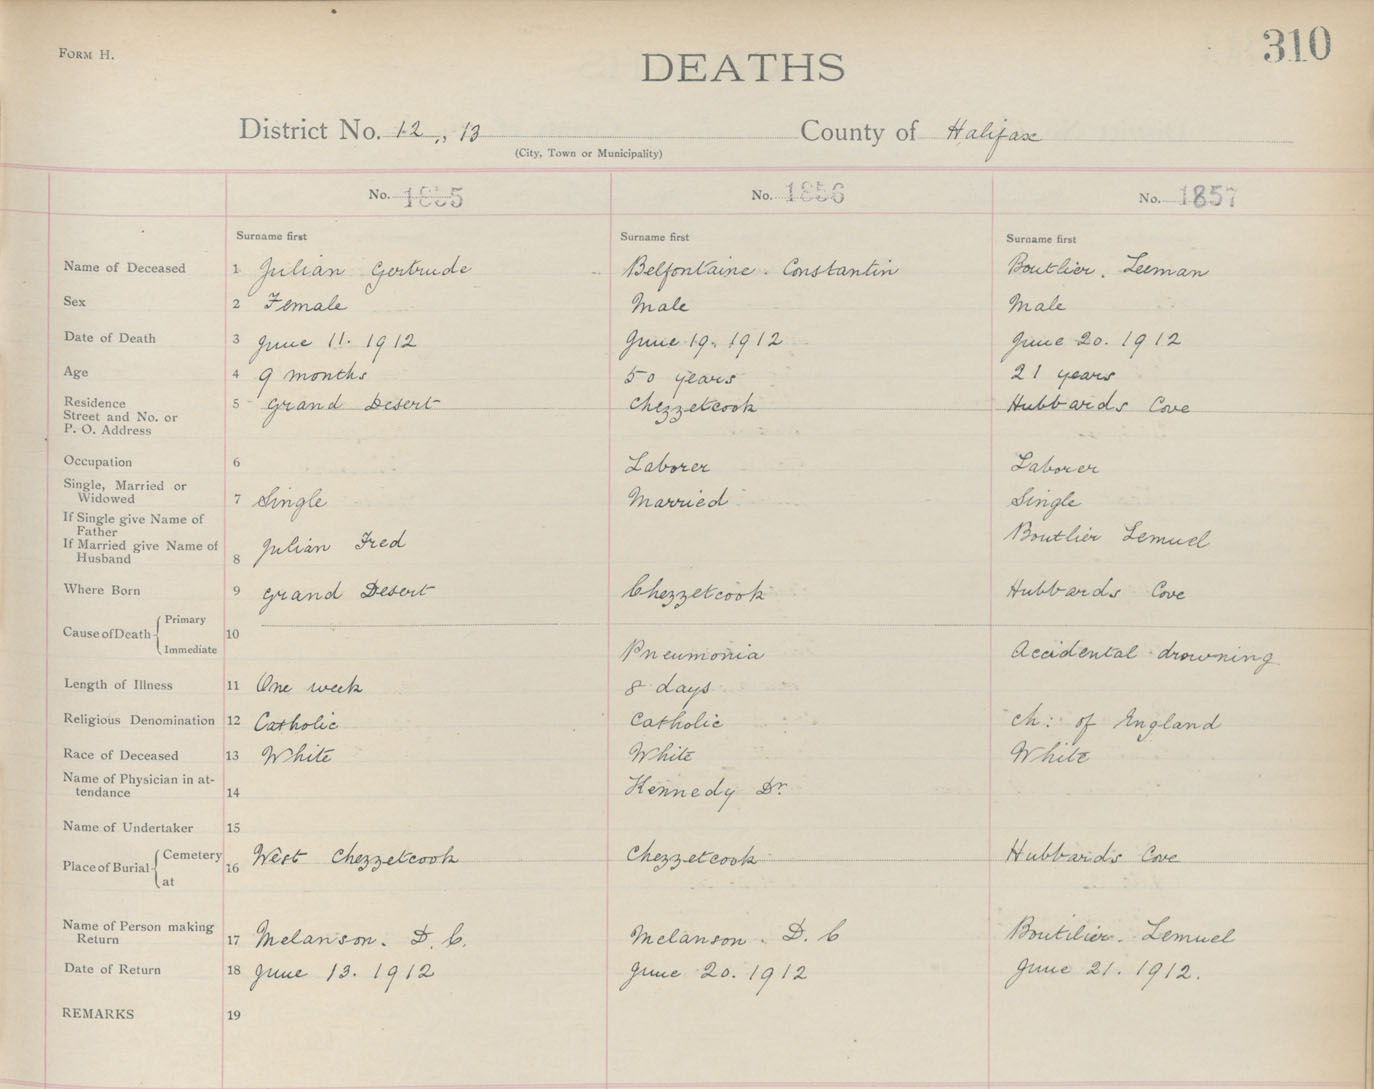 Form H.
310
DEATHS
District No. 12,, 13 County of Halifax
(City, Town or Municipality)
No. 1855 No. 1856 No. 1857
Surname first Surname first Surname first
Name of Deceased 1 Julian Gertrude Belfontaine. Constantin Boutlier. Leeman
Sex 2 Female Male Male
Date of Death 3 June 11. 1912 June 19. 1912 June 20. 1912
Age 4 9 months 50 years 21 years
Residence 5 Grand Desert Chezzetcook Hubbards Cove
Street and No. or
P. O. Address
Occupation 6 Laborer Laborer
Single, Married or
Widowed 7 Single Married Single
If Single give Name of
Father
If Married give Name of
Husband 8 Julian Fred Boutlier Lemuel
Where Born 9 Grand Desert Chezzetcook Hubbards Cove
Cause of Death Primary 10
Immediate Pneumonia Accidental drowning
Length of Illness 11 One week 8 days
Religious Denomination 12 Catholic Catholic Ch: of England
Race of Deceased 13 White White White
Name of Physician in at-
tendance 14 Kennedy Dr.
Name of Undertaker 15
Place of Burial Cemetery 16 West Chezzetcook Chezzetcook Hubbards Cove
at
Name of Person making
Return 17 Melanson. D. C. Melanson. D. C Boutilier. Lemuel
Date of Return 18 June 13. 1912 June 20. 1912 June 21. 1912.
REMARKS 19